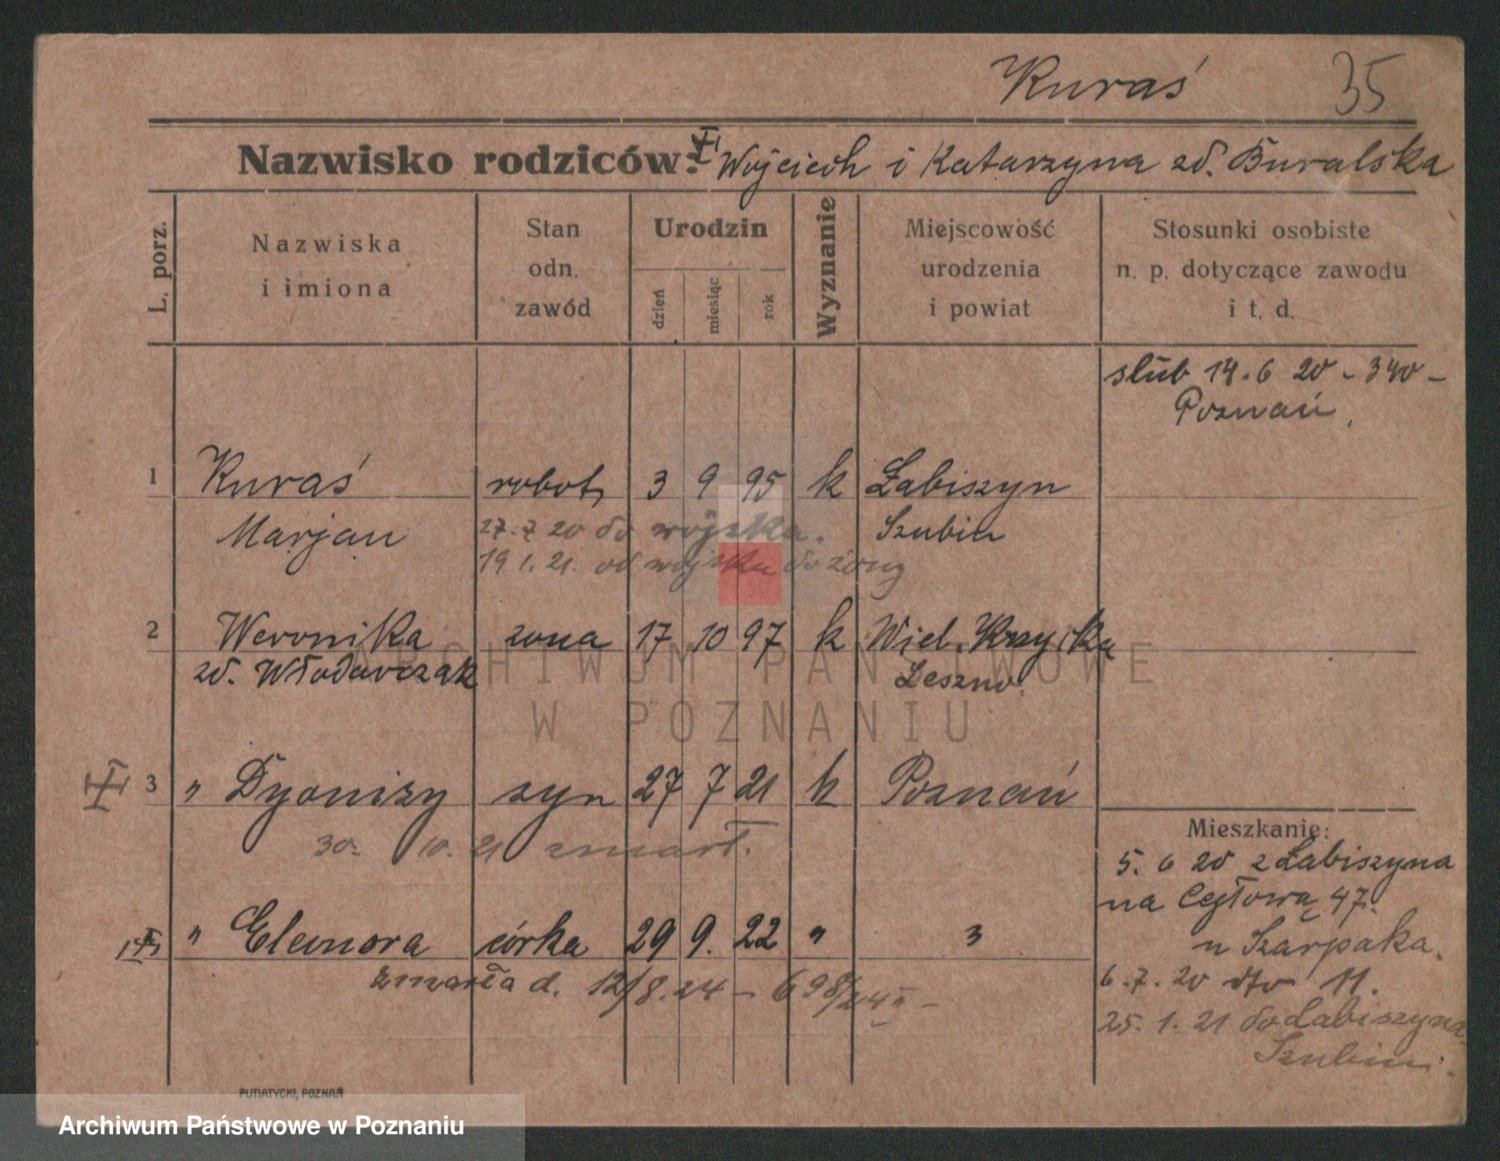 Kuraś 35
Nazwisko rodziców: Wojciech i Katarzyna zd. Buralska
L. porz.
Nazwiska
i imiona
Stan
odn.
zawód
Urodzin
dzień
miesiąc
rok
Wyznanie
Miejscowość
urodzenia
i powiat
Stosunki osobiste
n. p. dotyczące zawodu
i t. d.
ślub 14.6 20 - 340 -
Poznań,
1 Kuraś robot, 3 9 95 k Łabiszyn
Marjan Szubin
27.7 20 do wojska.
19 1. 21. od wojska do żony
2 Weronika żona 17 10 97 k Wiel. 
zd. Włodarczak Leszno.
3 " Dyonizy syn 27 7 21 k Poznań
30. 10. 21 zmarł.
" Eleonora córka 29 9. 22 " "
zmarła d. 12/8.24 - 698/24 II -
Mieszkanie:
5. 6 20 z Łabiszyna
na Cegłową 47.
u Szarpaka.
6.7.20 dto 11.
25.1.21 do Łabiszyna
Szubin.
PUTIATYCKI, POZNAŃ
ARCHIWUM PAŃSTWOWE
W POZNANIU
Archiwum Państwowe w Poznaniu